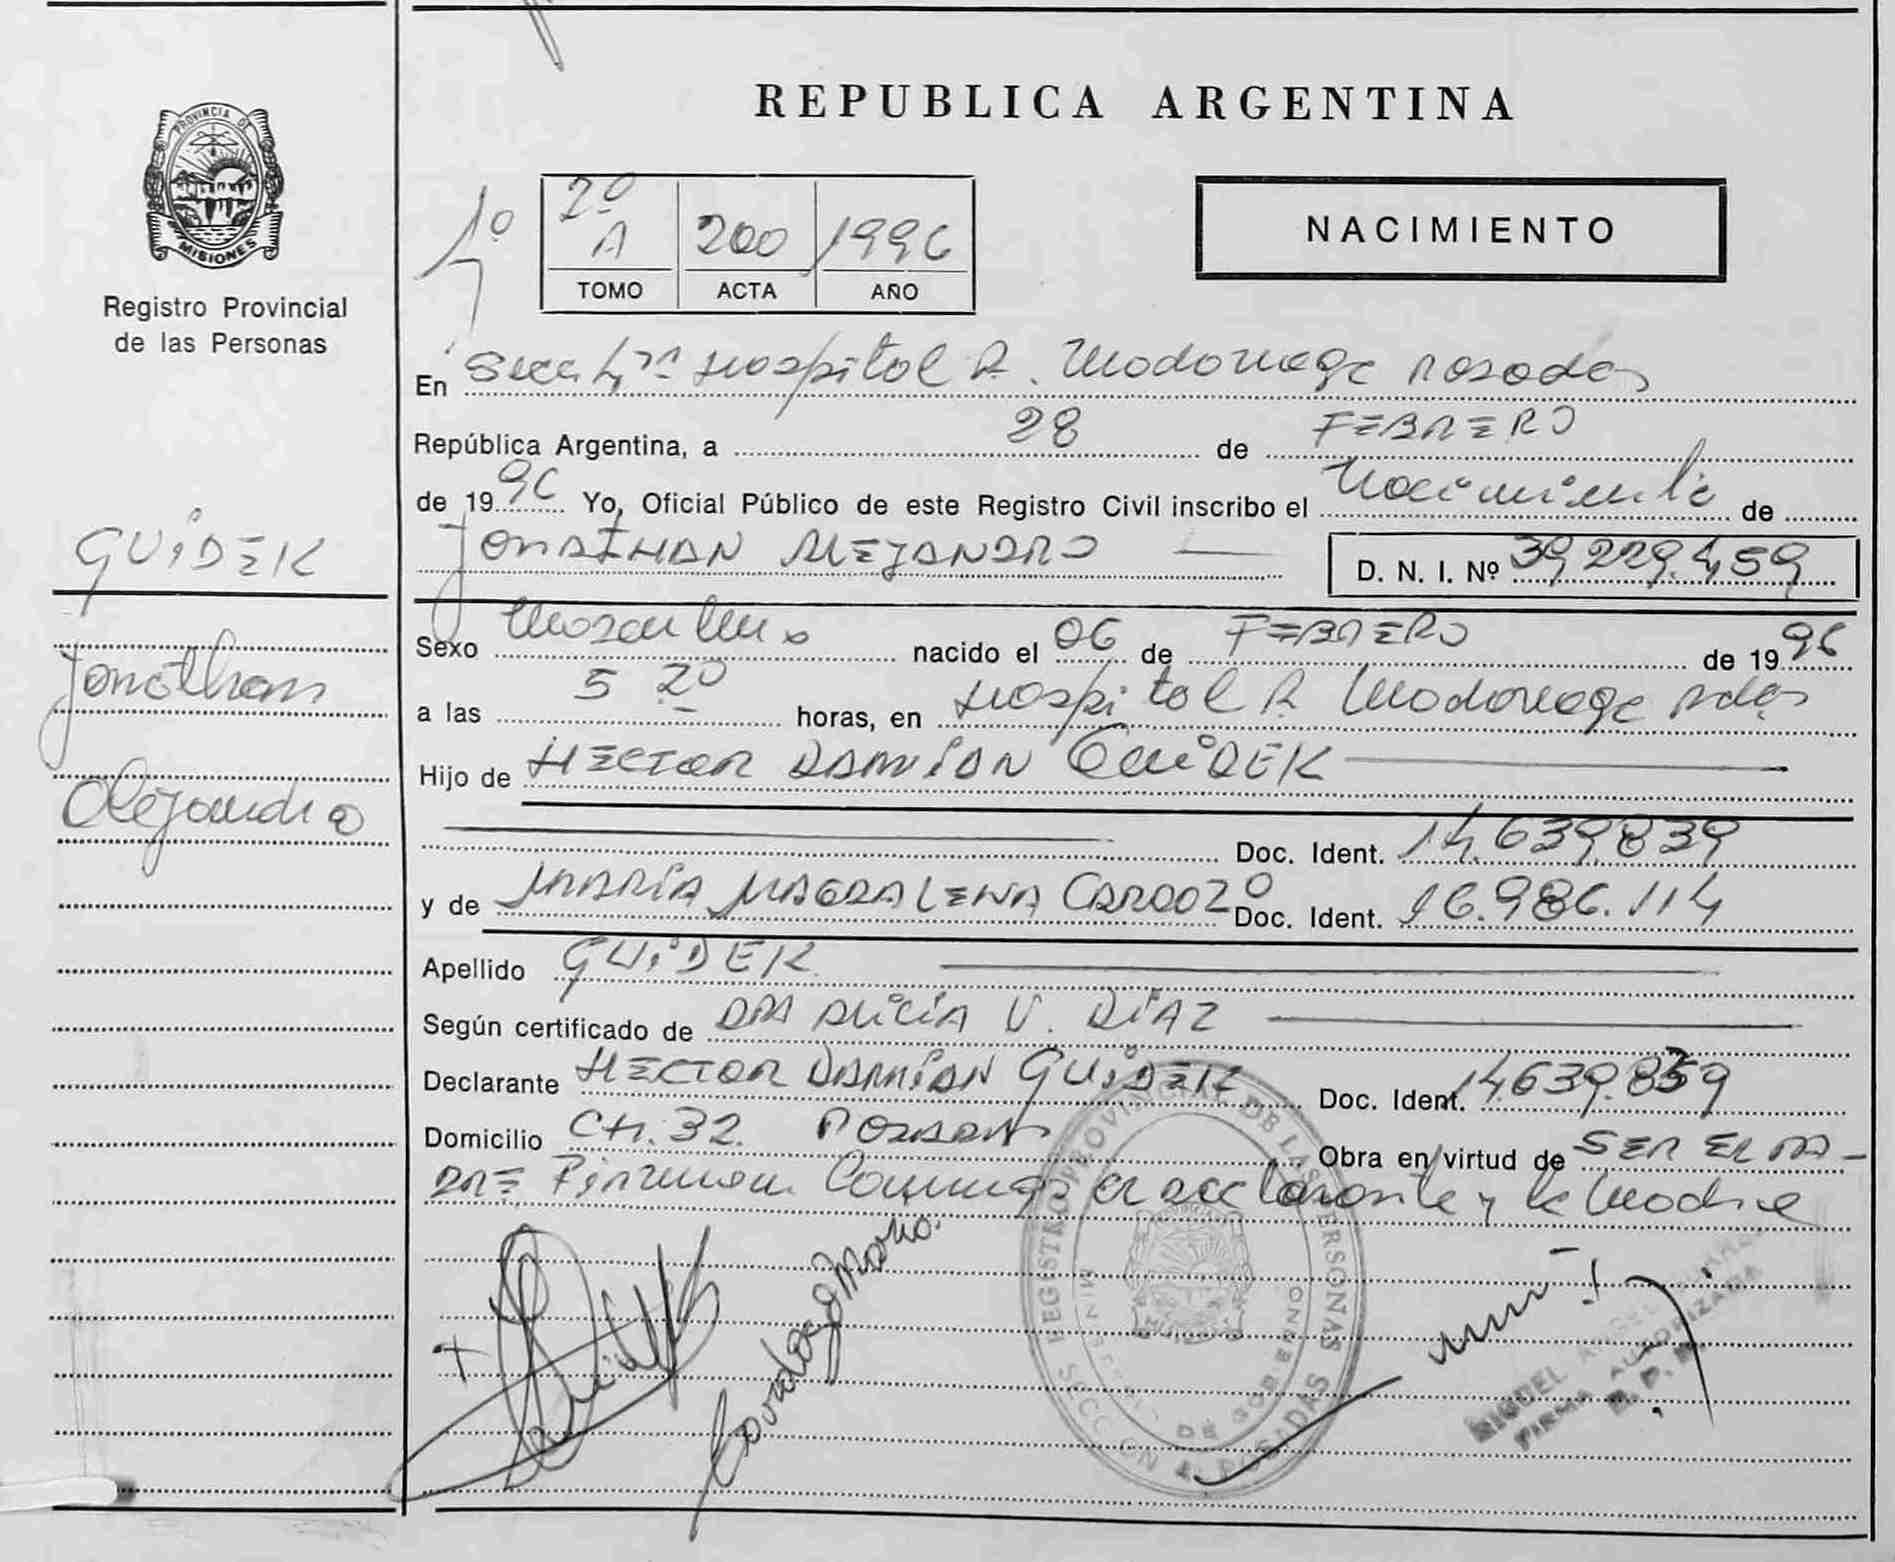 PROVINCIA DE
MISIONES
Registro Provincial
de las Personas
GUIDEK
Jonathan
Alejandro
REPUBLICA ARGENTINA
NACIMIENTO
1º
2º A 200 1996
TOMO ACTA AÑO
En Secc 4ta Hospital R. Madariaga Posadas
República Argentina, a 28 de FEBRERO
de 1996 Yo, Oficial Público de este Registro Civil inscribo el Nacimiento de
JONATHAN ALEJANDRO D. N. I. Nº 39.229.459
Sexo Masculino nacido el 06 de FEBRERO de 1996
a las 5 20 horas, en Hospital R Madariaga Pdas
Hijo de HECTOR DAMIÁN GUIDEK
Doc. Ident. 14.639.839
y de MARÍA MAGDALENA CARDOZO Doc. Ident. 16.986.114
Apellido GUIDEK
Según certificado de DRA ALICIA V. DÍAZ
Declarante HECTOR DAMIÁN GUIDEK Doc. Ident. 14.639.839
Domicilio CH. 32. POSADAS Obra en virtud de SER EL PA-
DRE Firman Conmigo el declarante y la Madre
Cardozo Maria
REGISTRO PROVINCIAL DE LAS PERSONAS
MINISTERIO DE GOBIERNO
SECCION 4 POSADAS
MIGUEL ANGEL
FIRMA AUTORIZADA
R. P. P.